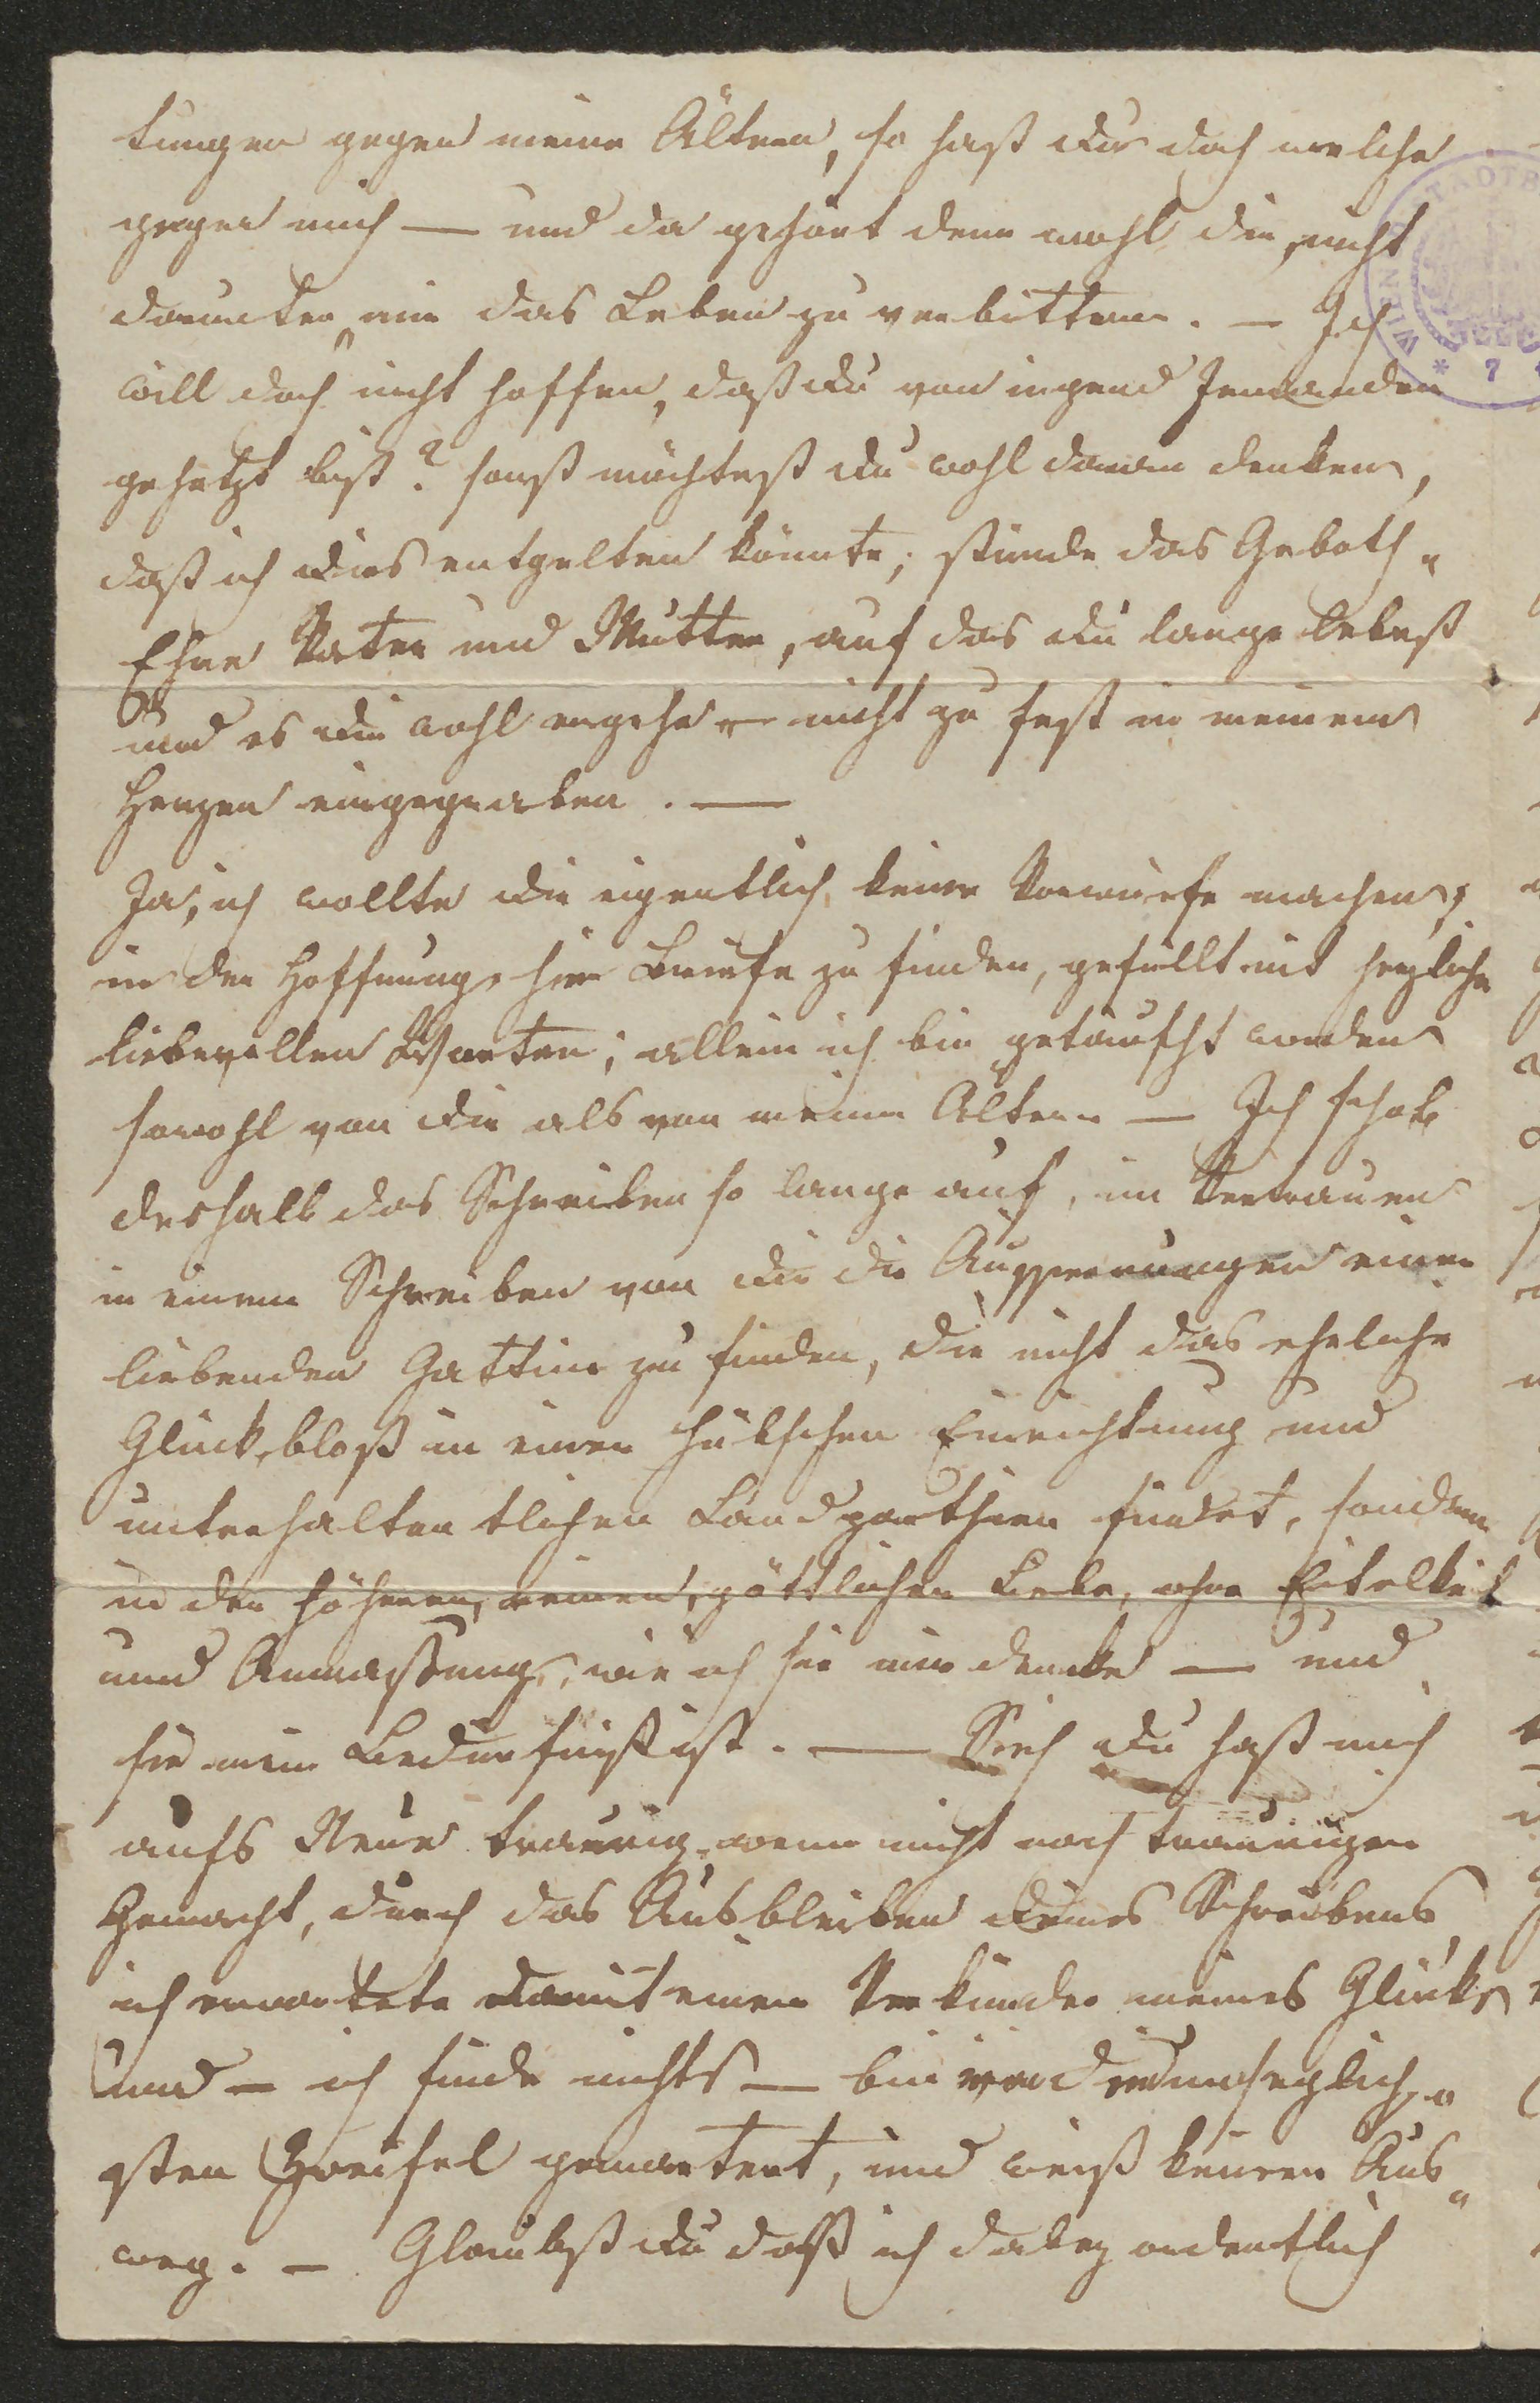 tungen gegen meine Ältern, so hast du doch welche
gegen mich — und da gehört denn wohl die, nicht
darunter mir das Leben zu verbittern. — Ich
will doch nicht hoffen, daß du von irgend Jemanden
gehetzt bist? sonst möchtest du wohl daran denken,
daß ich dies entgelten könnte; stünde das Geboth„
Ehre Vater und Mutter, auf das du lange lebest
und es dir wohl ergehe — nicht zu fest in meinem
Herzen eingegraben. —
Ja, ich wollte dir eigentlich keine Vorwürfe machen,
in der Hoffnung hier Briefe zu finden, gefüllt mit herzlichen
liebevollen Worten; allein ich bin getäuscht worden
sowohl von dir als von meinen Ältern — Ich schob
deshalb das Schreiben so lange auf, im Vertrauen
in einem Schreiben von dir die Äusserungen einer
liebenden Gattinn zu finden, die nicht das eheliche
Glück, bloß in einer hübschen Einrichtung und
unterhaltentlichen Landparthien findet, sondern
in der höheren, reinen, göttlichen Liebe, ohne Eitelkeit
und Anmassung, wie ich sie mir denke — und
sie mein Bedürfniß ist. — Sieh du hast mich
aufs Neue traurig, wenn nicht noch trauriger
Gemacht, durch das Ausbleiben deines Schreibens,
ich erwartete damit einen Verkünder meines Glücks
und — ich finde nichts — bin von unseglich„
sten Zweifel gemartert, und weiß keinen Aus„
weg. — Glaubst du daß ich dabey ordentlich
WIEN STADTB
* 7